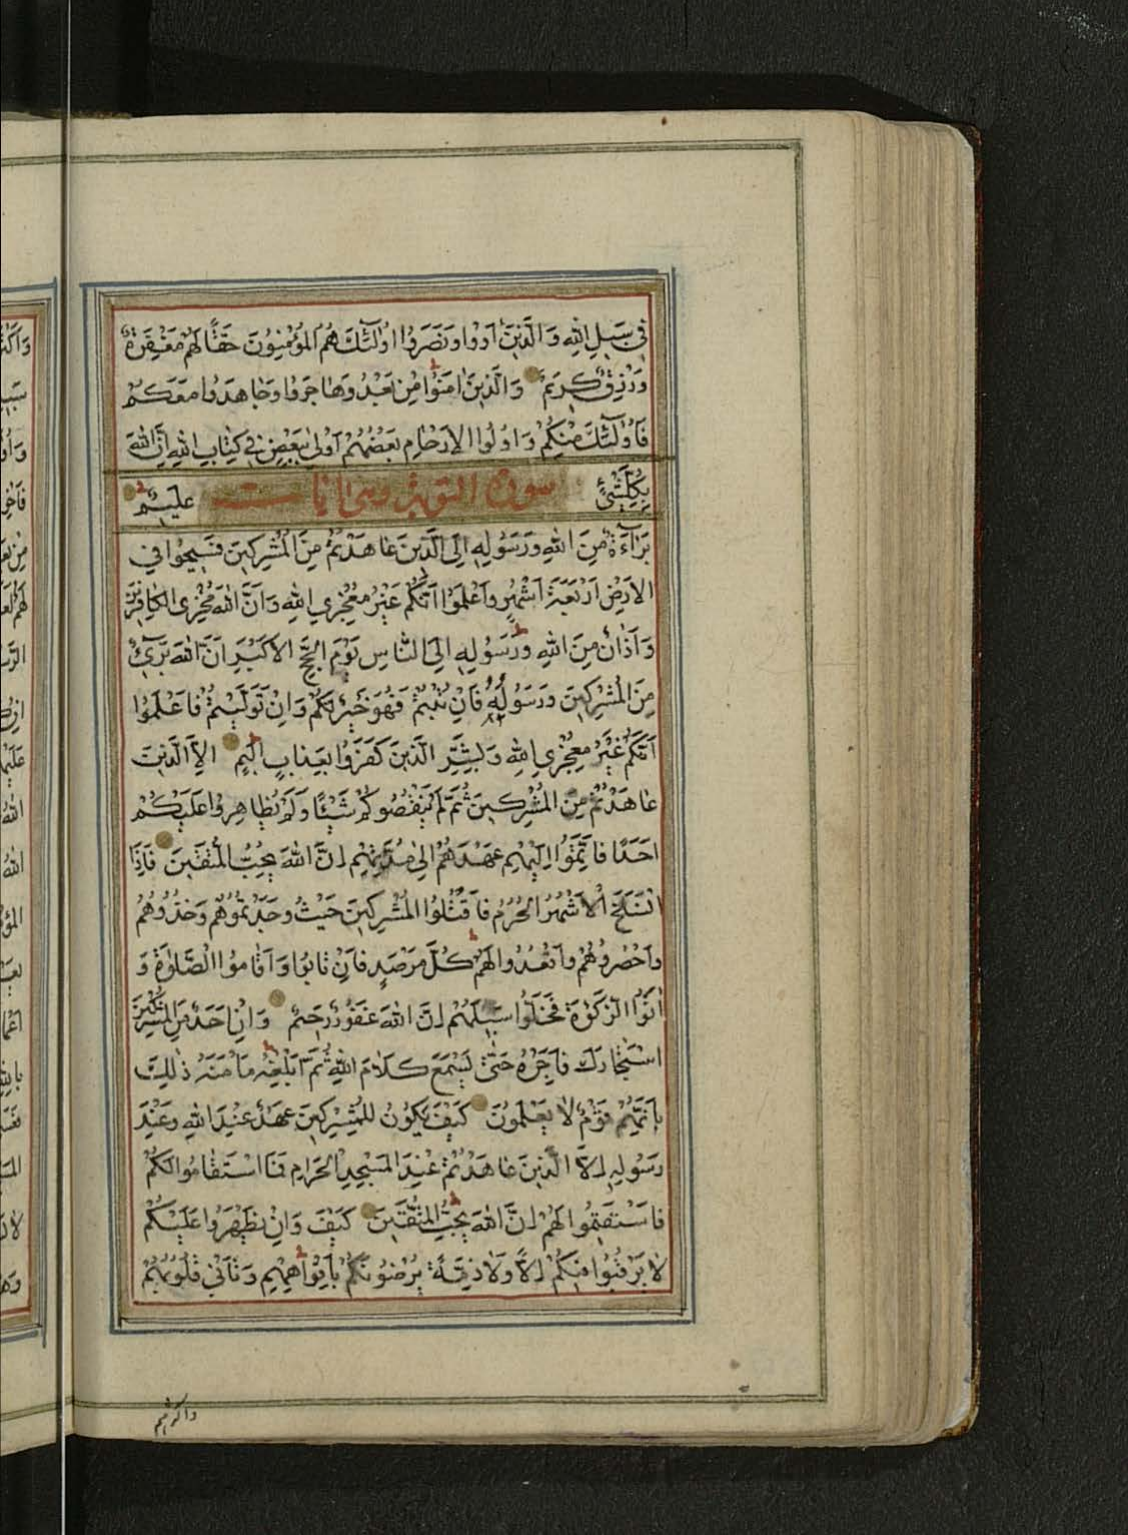 فِي سَبِيلِ اللهِ وَالَّذِينَ آوَوْا وَنَصَرُوا اُولٰئِكَ هُمُ الْمُؤْمِنُونَ حَقًّا لَهُمْ مَغْفِرَةٌ
وَرِزْقٌ كَرِيمٌ وَالَّذِينَ اٰمَنُوا مِنْ بَعْدُ وَهَاجَرُوا وَجَاهَدُوا مَعَكُمْ
فَاُولٰئِكَ مِنْكُمْ وَاُولُوا الْاَرْحَامِ بَعْضُهُمْ اَوْلٰى بِبَعْضٍ فِي كِتَابِ اللهِ اِنَّ اللهَ
بِكُلِّ شَيْءٍ عَلِيمٌ
سورة التوبة
بَرَاءَةٌ مِنَ اللهِ وَرَسُولِهِ اِلَى الَّذِينَ عَاهَدْتُمْ مِنَ الْمُشْرِكِينَ فَسِيحُوا فِي
الْاَرْضِ اَرْبَعَةَ اَشْهُرٍ وَاعْلَمُوا اَنَّكُمْ غَيْرُ مُعْجِزِي اللهِ وَاَنَّ اللهَ مُخْزِي الْكَافِرِينَ
وَاَذَانٌ مِنَ اللهِ وَرَسُولِهِ اِلَى النَّاسِ يَوْمَ الْحَجِّ الْاَكْبَرِ اَنَّ اللهَ بَرِيءٌ
مِنَ الْمُشْرِكِينَ وَرَسُولُهُ فَاِنْ تُبْتُمْ فَهُوَ خَيْرٌ لَكُمْ وَاِنْ تَوَلَّيْتُمْ فَاعْلَمُوا
اَنَّكُمْ غَيْرُ مُعْجِزِي اللهِ وَبَشِّرِ الَّذِينَ كَفَرُوا بِعَذَابٍ اَلِيمٍ اِلَّا الَّذِينَ
عَاهَدْتُمْ مِنَ الْمُشْرِكِينَ ثُمَّ لَمْ يَنْقُصُوكُمْ شَيْئًا وَلَمْ يُظَاهِرُوا عَلَيْكُمْ
اَحَدًا فَاَتِمُّوا اِلَيْهِمْ عَهْدَهُمْ اِلٰى مُدَّتِهِمْ اِنَّ اللهَ يُحِبُّ الْمُتَّقِينَ فَاِذَا
انْسَلَخَ الْاَشْهُرُ الْحُرُمُ فَاقْتُلُوا الْمُشْرِكِينَ حَيْثُ وَجَدْتُمُوهُمْ وَخُذُوهُمْ
وَاحْصُرُوهُمْ وَاقْعُدُوا لَهُمْ كُلَّ مَرْصَدٍ فَاِنْ تَابُوا وَاَقَامُوا الصَّلٰوةَ وَ
اٰتَوُا الزَّكٰوةَ فَخَلُّوا سَبِيلَهُمْ اِنَّ اللهَ غَفُورٌ رَحِيمٌ وَاِنْ اَحَدٌ مِنَ الْمُشْرِكِينَ
اسْتَجَارَكَ فَاَجِرْهُ حَتّٰى يَسْمَعَ كَلَامَ اللهِ ثُمَّ اَبْلِغْهُ مَأْمَنَهُ ذٰلِكَ
بِاَنَّهُمْ قَوْمٌ لَا يَعْلَمُونَ كَيْفَ يَكُونُ لِلْمُشْرِكِينَ عَهْدٌ عِنْدَ اللهِ وَعِنْدَ
رَسُولِهِ اِلَّا الَّذِينَ عَاهَدْتُمْ عِنْدَ الْمَسْجِدِ الْحَرَامِ فَمَا اسْتَقَامُوا لَكُمْ
فَاسْتَقِيمُوا لَهُمْ اِنَّ اللهَ يُحِبُّ الْمُتَّقِينَ كَيْفَ وَاِنْ يَظْهَرُوا عَلَيْكُمْ
لَا يَرْقُبُوا فِيكُمْ اِلًّا وَلَا ذِمَّةً يُرْضُونَكُمْ بِاَفْوَاهِهِمْ وَتَأْبٰى قُلُوبُهُمْ